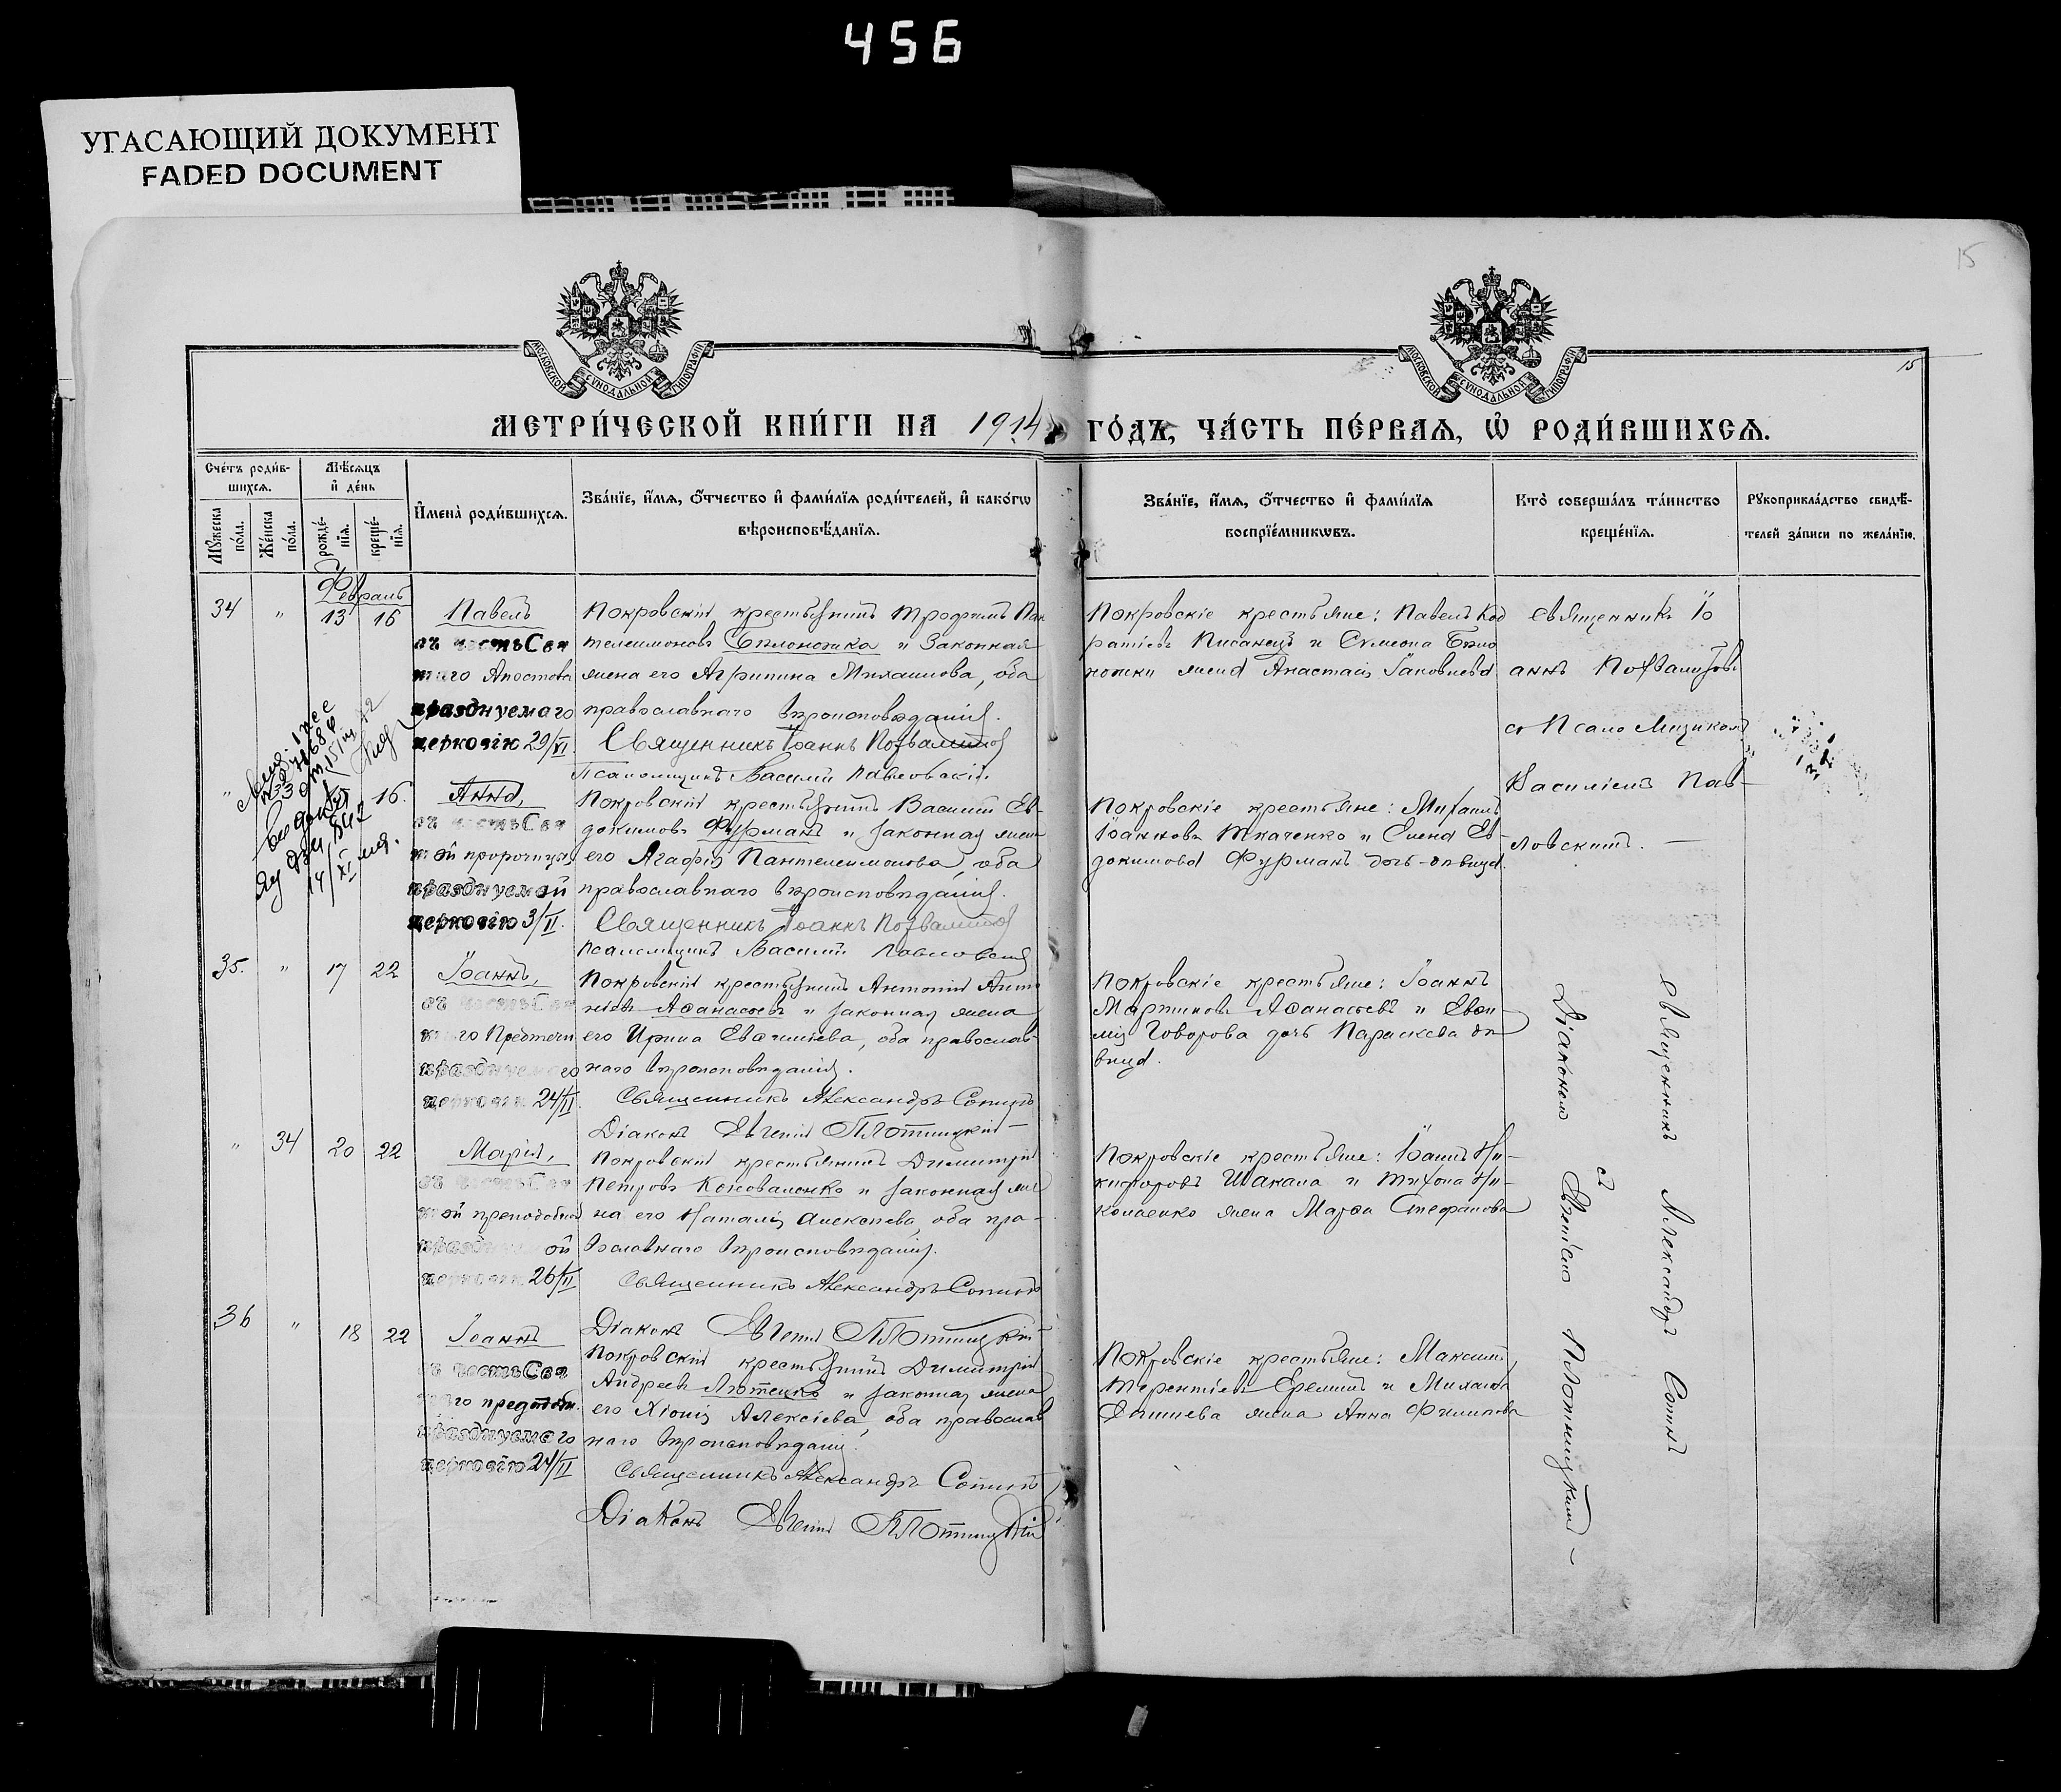 456
УГАСАЮЩИЙ ДОКУМЕНТ
FADED DOCUMENT
15
МОСКОВСКОЙ СУНОДАЛЬНОЙ ТИПОГРАФІИ
МОСКОВСКОЙ СУНОДАЛЬНОЙ ТИПОГРАФІИ
15
МЕТРИ́ЧЕСКОЙ КНИ́ГИ НА 1914 ГО́ДЪ, ЧА́СТЬ ПЕ́РВАЯ, Ѽ РОДИ́ВШИХСЯ.
Сче́тъ роди́вшихся.
Мꙋ́жеска по́ла.
Же́нска по́ла.
Мѣ́сяцъ и҆ де́нь
рожде́нїя.
креще́нїя.
И҆мена̀ роди́вшихся.
Зва́нїе, и҆́мя, ѻ҆́тчество и҆ фами́лїя роди́телей, и҆ како́гѡ
вѣроисповѣ́данїя.
Зва́нїе, и҆́мя, ѻ҆́тчество и҆ фами́лїя
воспрїе́мникѡвъ.
Кто̀ соверша́лъ та́инство
креще́нїя.
Рꙋкоприкла́дство свидѣ́-
телей за́писи по жела́нїю.
Февраль
34 " 13 16 Павелъ
въ честь Свя
таго Апостола
празднуемаго
церковію 29/VI
Покровскій крестьянинъ Трофимъ Пан
телеимоновъ Бѣлоножка и законная
жена его Агрипина Михаилова, оба
православнаго вѣроисповѣданія.
Священникъ Іоаннъ Похвалитовъ
Псаломщикъ Василій Павловскій.
Покровскіе крестьяне: Павелъ Код
ратіевъ Писанецъ и Симеона Бѣло
ножки жена Анастасія Іаковлева
священникъ Іо
аннъ Похвалитовъ
съ Псаломщикомъ
Василіемъ Пав-
ловскимъ. —
" 16. Анна,
въ честь Свя
той пророчицы
празднуемой
церковію 3/II.
Покровскій крестьянинъ Василій Ев-
докимовъ Фурманъ и законная жена
его Агафія Пантелеимонова, оба
православнаго вѣроисповѣданія.
Священникъ Іоаннъ Похвалитовъ
Псаломщикъ Василій Павловскій
Покровскіе крестьяне: Михаилъ
Іоанновъ Ткаченко и Елена Ев-
докимова Фурманъ дочь-дѣвица.
35. " 17 22 Іоаннъ,
въ честь Свя
таго Предтечи
празднуемаго
церковію 24/II.
Покровскій крестьянинъ Антоній Анто
ніевъ Аѳанасьевъ и законная жена
его Ирина Евѳиміева, оба православ-
наго вѣроисповѣданія.
Священникъ Александръ Сотинъ
Діаконъ Евгеній Плотницкій —
Покровскіе крестьяне: Іоаннъ
Мартиновъ Аѳанасьевъ и Евѳи-
мія Говорова дочь Параскева дѣ
вица.
Священникъ Александръ Сотинъ
съ
Діакономъ Евгеніемъ Плотницкимъ —
" 34 20 22 Марія,
въ честь Свя
той преподобной
празднуемой
церковію 26/II
Покровскій крестьянинъ Димитрій
Петровъ Коноваленко и законная же
на его Наталія Алексіева, оба пра-
вославнаго вѣроисповѣданія.
Священникъ Александръ Сотинъ
Діаконъ Евгеній Плотницкій —
Покровскіе крестьяне: Іоаннъ Ни-
кифоровъ Шакала и Тихона Ни-
колаенко жена Марѳа Стефанова
36 " 18 22 Іоаннъ
въ честь Свя
таго преподобн.
празднуемаго
церковію 24/II
Покровскій крестьянинъ Димитрій
Андреевъ Лютенко и законная жена
его Хіонія Алексіева, оба православ
наго вѣроисповѣданія.
Священникъ Александръ Сотинъ
Діаконъ Евгеній Плотницкій
Покровскіе крестьяне: Максимъ
Терентіевъ Ереминъ и Михаила
жена Анна Филипова